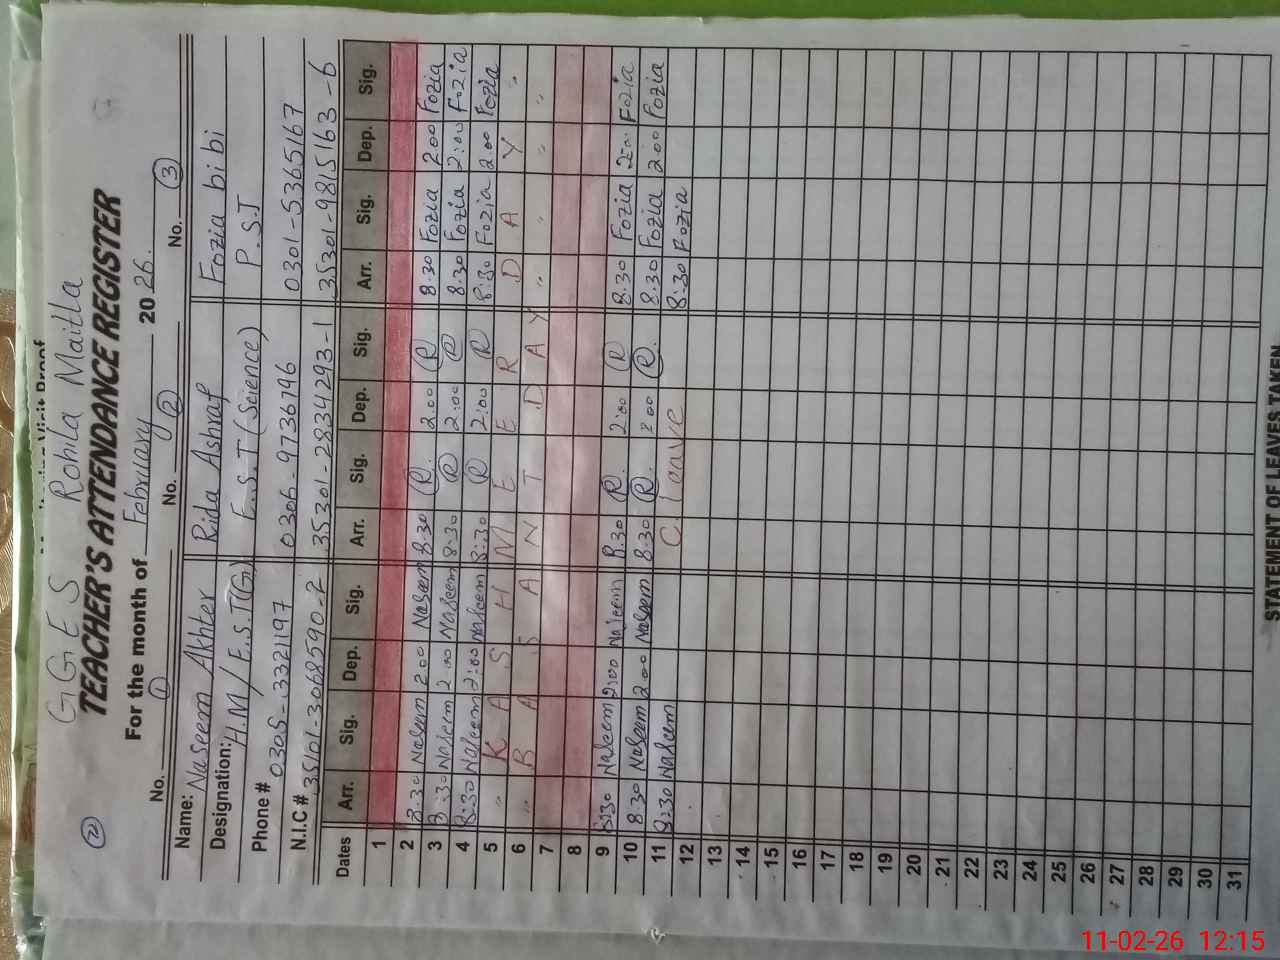 GGES Rohila Maitla
TEACHER'S ATTENDANCE REGISTER
② For the month of February 2026.
No. ① No. ② No. ③
Name: Naseem Akhter Rida Ashraf Fozia bibi
Designation: H.M/E.S.T(G) E.S.T(Science) P.S.T
Phone # 0305-3321197 0306-9736796 0301-5365167
N.I.C # 35101-3068590-2 35301-2834293-1 35301-9815163-6
Dates Arr. Sig. Dep. Sig. Arr. Sig. Dep. Sig. Arr. Sig. Dep. Sig.
1
2 8:30 Naseem 2:00 Naseem 8:30 R. 2:00 R 8:30 Fozia 2:00 Fozia
3 8:30 Naseem 2:00 Naseem 8:30 R 2:00 R 8:30 Fozia 2:00 Fozia
4 8:30 Naseem 2:00 Naseem 8:30 R 2:00 R 8:30 Fozia 2:00 Fozia
5 " KASHMEER DAY "
6 " BASANT DAY " " " "
7
8
9 8:30 Naseem 2:00 Naseem 8:30 R. 2:00 R 8:30 Fozia 2:00 Fozia
10 8:30 Naseem 2:00 Naseem 8:30 R. 2:00 R. 8:30 Fozia 2:00 Fozia
11 8:30 Naseem C leave 8:30 Fozia
12
13
14
15
16
17
18
19
20
21
22
23
24
25
26
27
28
29
30
31
STATEMENT OF LEAVES TAKEN
11-02-26 12:15